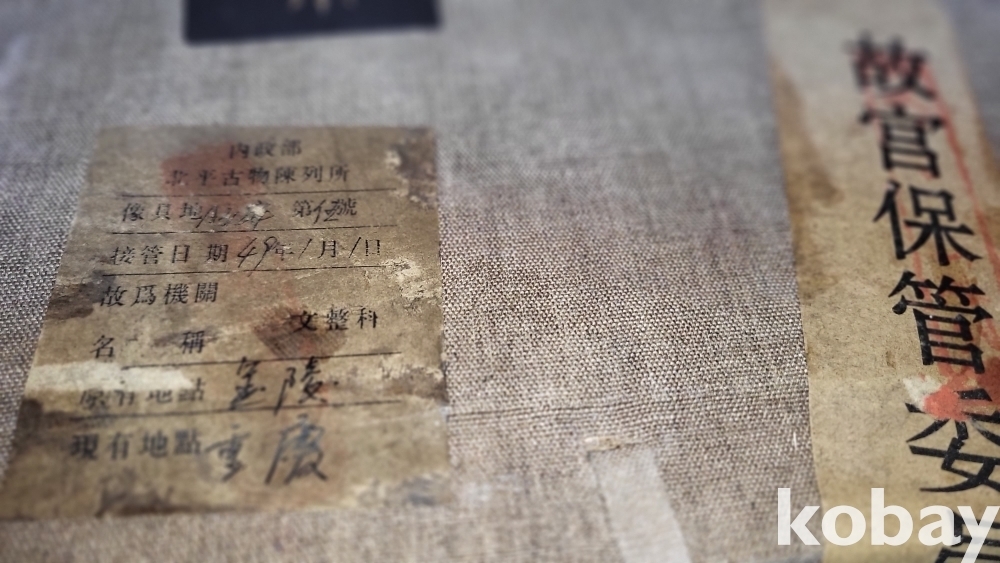 內政部
北平古物陳列所
傢具地 第伍號
接管日期 49年1月1日
故爲機關
文整科
名稱
原有地點 金陵
現有地點 重慶
故宮保管委員
kobay